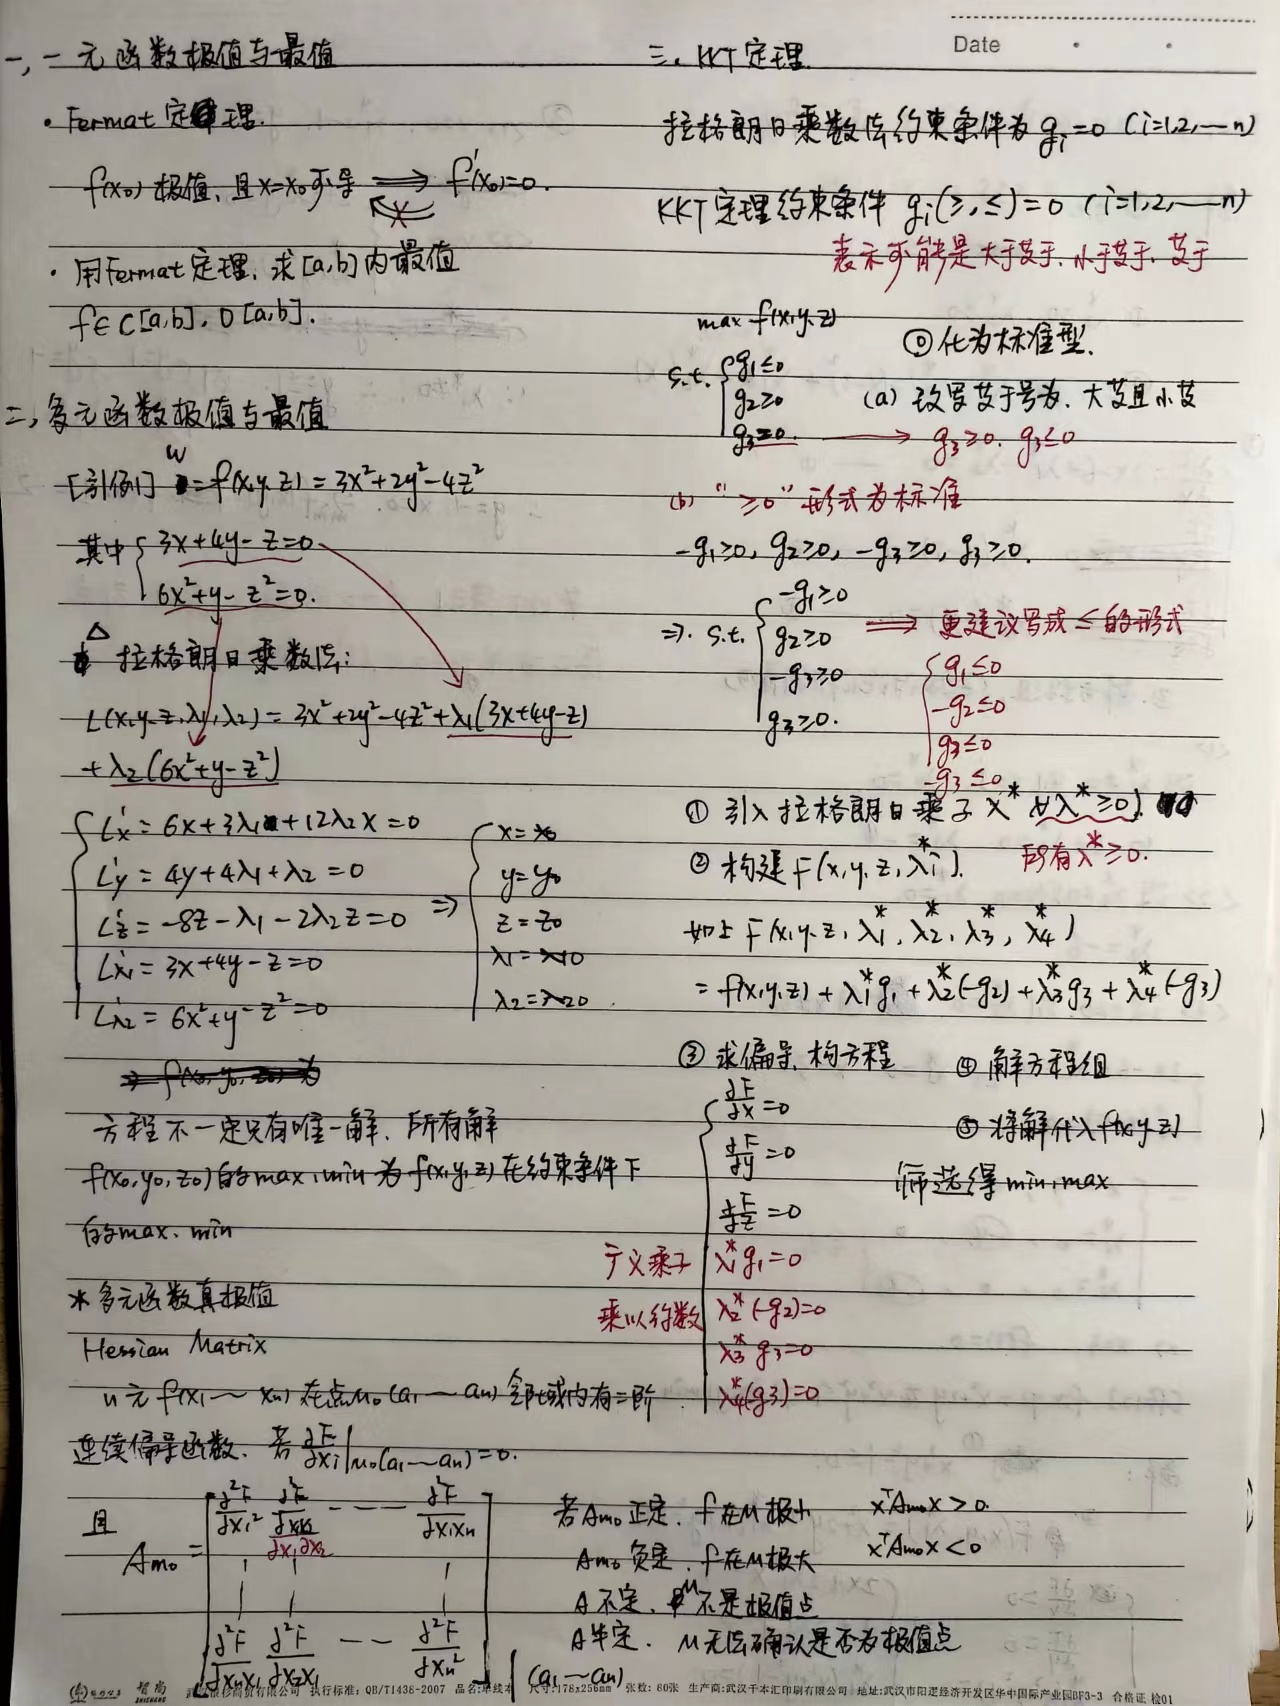 一, 一元函数极值与最值
· Fermat 定理.
f(x₀) 极值, 且 x=x₀ 可导 ⟹ f'(x₀)=0.
· 用Fermat定理, 求[a,b]内最值
f∈C[a,b], D[a,b].
二, 多元函数极值与最值
[引例] w=f(x,y,z)=3x²+2y²-4z²
其中 { 3x+4y-z=0
6x²+y-z²=0.
△ 拉格朗日乘数法:
L(x,y,z,λ₁,λ₂)=3x²+2y²-4z²+λ₁(3x+4y-z)
+λ₂(6x²+y-z²)
L'x=6x+3λ₁+12λ₂x=0
L'y=4y+4λ₁+λ₂=0
L'z=-8z-λ₁-2λ₂z=0
L'λ₁=3x+4y-z=0
L'λ₂=6x²+y-z²=0
⇒ { x=x₀
y=y₀
z=z₀
λ₁=λ₁₀
λ₂=λ₂₀
方程不一定只有唯一解, 所有解
f(x₀,y₀,z₀)的max,min为f(x,y,z)在约束条件下
的max、min
* 多元函数真极值
Hessian Matrix
n元 f(x₁~xₙ) 在点M₀(a₁~aₙ)邻域内有二阶
连续偏导函数. 若 ∂F/∂xᵢ|M₀(a₁~aₙ)=0.
且 A_M₀ = [ ∂²F/∂x₁² ∂²F/∂x₁∂x₂ --- ∂²F/∂x₁xₙ
∂²F/∂xₙx₁ ∂²F/∂x₂x₁ -- ∂²F/∂xₙ² ]
(a₁~aₙ)
若A_M₀正定, f在M极小 xᵀA_M₀x>0.
A_M₀负定, f在M极大 xᵀA_M₀x<0
A不定, M不是极值点
A半定. M无法确认是否为极值点
Date
三. KKT定理
拉格朗日乘数法约束条件为 gᵢ=0 (i=1,2,—n)
KKT定理约束条件 gᵢ(≥,≤)=0 (i=1,2,—n)
表示可能是大于等于、小于等于、等于
max f(x,y,z)
s.t. { g₁≤0
g₂≥0
g₃=0.
⓪化为标准型.
(a) 改写等于号为, 大等且小等
→ g₃≥0, g₃≤0
(b) "≥0"形式为标准
-g₁≥0, g₂≥0, -g₃≥0, g₃≥0.
⇒. s.t. { -g₁≥0
g₂≥0
-g₃≥0
g₃≥0.
⟹ 更建议写成≤的形式
{ g₁≤0
-g₂≤0
g₃≤0
-g₃≤0
① 引入拉格朗日乘子λ*(∀λ*≥0)
所有λ*≥0.
② 构建F(x,y,z,λ*ᵢ).
如上F(x,y,z,λ₁*,λ₂*,λ₃*,λ₄*)
=f(x,y,z)+λ₁*g₁+λ₂*(-g₂)+λ₃*g₃+λ₄*(-g₃)
③ 求偏导, 构方程
∂F/∂x=0
∂F/∂y=0
∂F/∂z=0
广义乘子 λ₁*g₁=0
乘以约数 λ₂*(-g₂)=0
λ₃*g₃=0
λ₄*(g₃)=0
④ 解方程组
⑤ 将解代入f(x,y,z)
筛选得min,max
执行标准: QB/T1438-2007 品名:单线本 尺寸:178x256mm 张数: 80张 生产商:武汉千本汇印刷有限公司 地址:武汉市阳逻经济开发区华中国际产业园BF3-3 合格证 检01